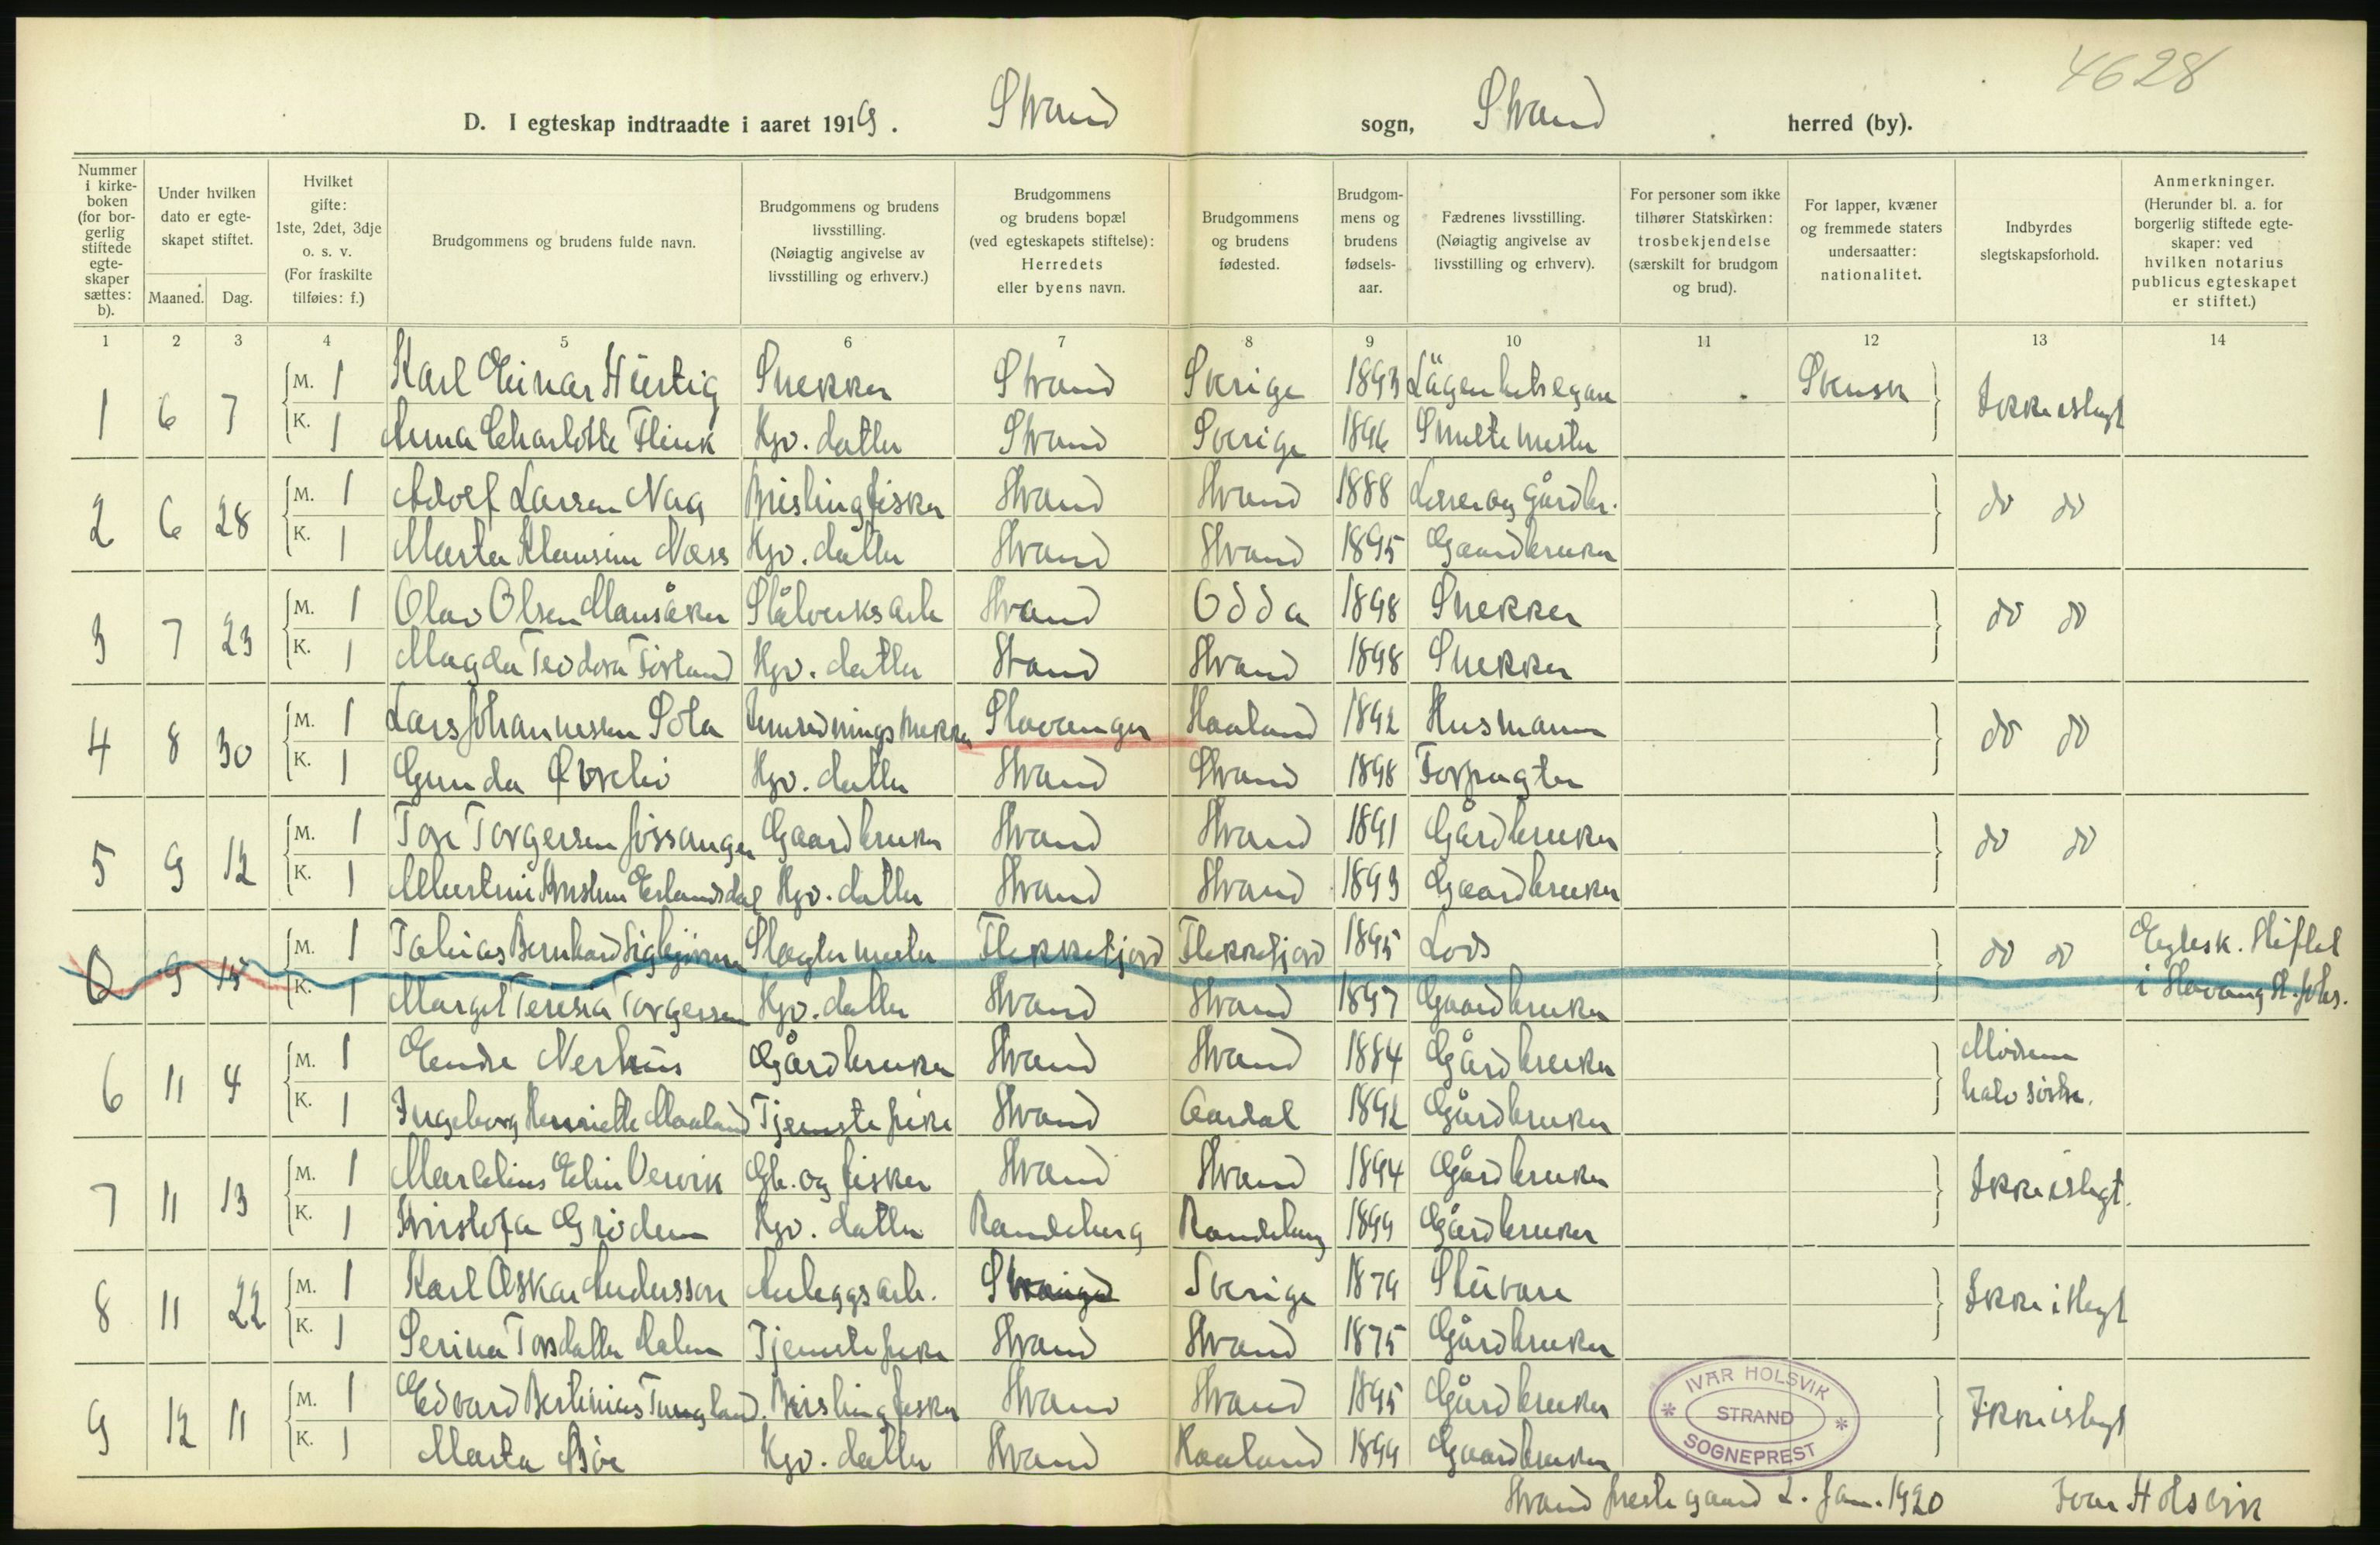 4628
D. I egteskap indtraadte i aaret 1919. Strand sogn, Strand herred (by).
Nummer i kirkeboken (for borgerlig stiftede egteskaper sættes: b).
Under hvilken dato er egteskapet stiftet.
Maaned. Dag.
Hvilket gifte: 1ste, 2det, 3dje o. s. v. (For fraskilte tilføies: f.)
Brudgommens og brudens fulde navn.
Brudgommens og brudens livsstilling. (Nøiagtig angivelse av livsstilling og erhverv.)
Brudgommens og brudens bopæl (ved egteskapets stiftelse): Herredets eller byens navn.
Brudgommens og brudens fødested.
Brudgommens og brudens fødselsaar.
Fædrenes livsstilling. (Nøiagtig angivelse av livsstilling og erhverv).
For personer som ikke tilhører Statskirken: trosbekjendelse (særskilt for brudgom og brud).
For lapper, kvæner og fremmede staters undersaatter: nationalitet.
Indbyrdes slegtskapsforhold.
Anmerkninger. (Herunder bl. a. for borgerlig stiftede egteskaper: ved hvilken notarius publicus egteskapet er stiftet.)
1 2 3 4 5 6 7 8 9 10 11 12 13 14
1 6 7 M. 1 Karl Einar Hürtig Snekker Strand Sverige 1893 Lägenhetsegare Svensk Ikke i slegt
K. 1 Anna Charlotte Flink Hjv. datter Strand Sverige 1896 Smeltemester
2 6 28 M. 1 Adolf Larsen Nag Brislingfisker Strand Strand 1888 Lærer og Gårdbr. do do
K. 1 Marta Klausine Næss Hjv. datter Strand Strand 1895 Gaardbruker
3 7 23 M. 1 Olav Olsen Mansåker Stålverksarb Strand Odda 1898 Snekker do do
K. 1 Magda Teodora Tövland Hjv. datter Stand Strand 1898 Snekker
4 8 30 M. 1 Lars Johannesen Sola Stavanger Haaland 1892 Husmann do do
K. 1 Gunda Hjv. datter Strand Strand 1898 Forpagter
5 9 12 M. 1 Tore Torgersen Jössanger Gaardbruker Strand Strand 1891 Gårdbruker do do
K. 1 Albertine Kristine Erlandsdal Hjv. datter Strand Strand 1893 Gaardbruker
6 9 15 M. 1 Tobias Bernhard Sigbjörnsen Slagtermester Flekkefjord Flekkefjord 1895 Lods do do Egtesk. stiftet
K. 1 Margit Teresia Torgersen Hjv. datter Strand Strand 1897 Gaardbruker i Stavang St. Johs.
6 11 4 M. 1 Endre Nerhus Gårdbruker Strand Strand 1884 Gårdbruker Mödrene
K. 1 Ingeborg Henriette Maaland Tjenestepike Strand Aardal 1892 Gårdbruker halvsöstre.
7 11 13 M. 1 Marselius Elin Vervik Gb. og fisker Strand Strand 1894 Gårdbruker Ikke i slegt.
K. 1 Kristofa Grödem Hjv. datter Randeberg Randeberg 1899 Gårdbruker
8 11 22 M. 1 Karl Oskar Andersson Anleggsarb. Strand Sverige 1879 Stuvare Ikke i slegt
K. 1 Serina Torsdatter Dalen Tjenestepike Strand Strand 1875 Gårdbruker
9 12 11 M. 1 Edvard Bertinius Tungland. Brislingfisker Strand Strand 1895 Gårdbruker Ikke i slegt
K. 1 Marta Bøe Hjv. datter Strand Haaland 1899 Gaardbruker
IVAR HOLSVIK
* STRAND *
SOGNEPREST
Strand prestegaard 2. Jan. 1920 Ivar Holsvik